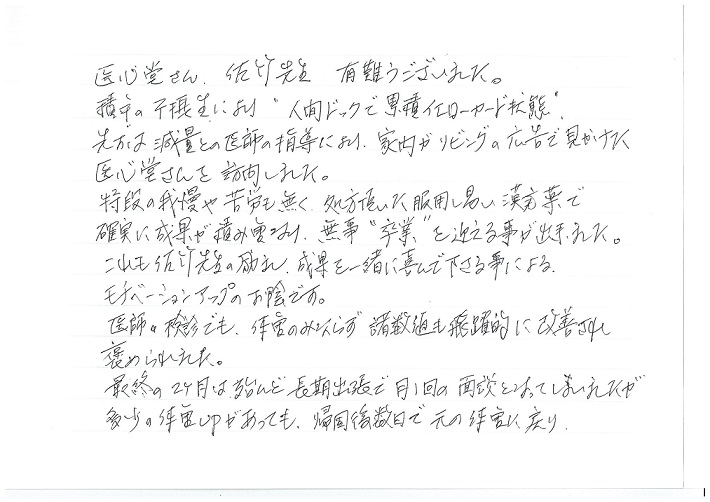 医心堂さん、佐竹先生 有難うございました。
積年の不摂生により "人間ドックで累積イエローカード状態"、
先ずは減量との医師の指導により、家内がリビングの広告で見かけた
医心堂さんを訪問しました。
特段の我慢や苦労も無く、処方頂いた服用し易い漢方薬で
確実に成果が積み重なり、無事"卒業"を迎える事が出来ました。
これも佐竹先生の励まし、成果を一緒に喜んで下さる事による
モチベーションアップのお陰です。
医師の検診でも、体重のみならず諸数値も飛躍的に改善され
褒められました。
最終の2ヶ月は殆んど長期出張で月1回の面談となってしまいましたが
多少の体重upがあっても、帰国後数日で元の体重に戻り、